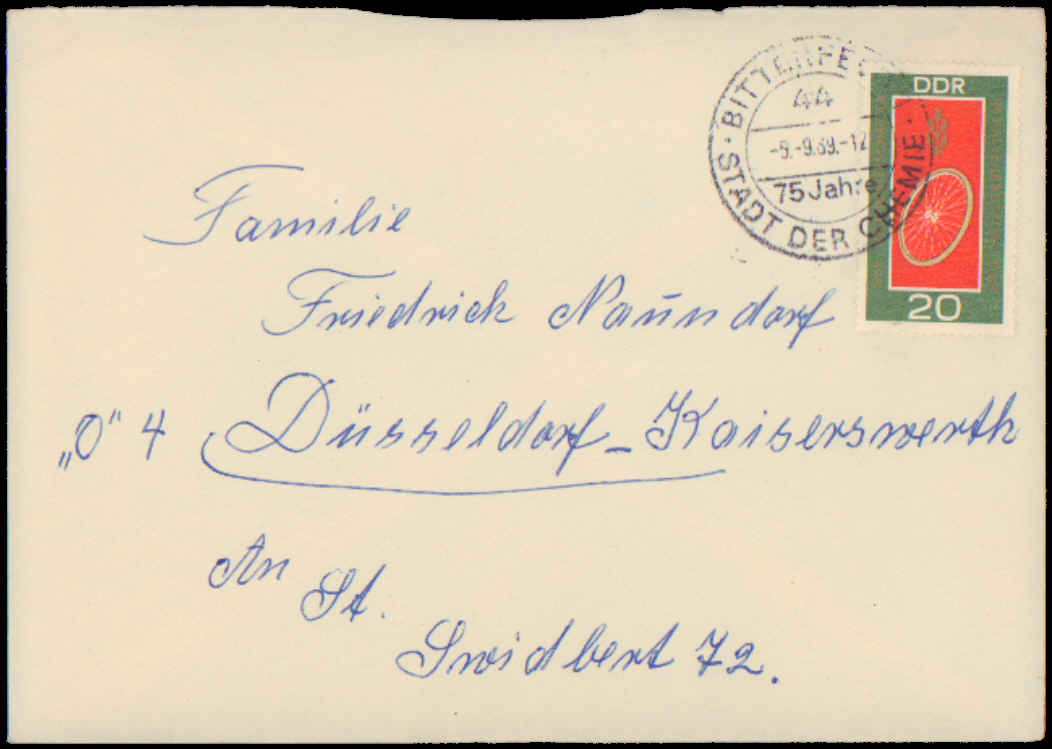 BITTERFELD
44
-9.69.-12
75 Jahre
STADT DER CHEMIE
DDR
20
Familie
Friedrich Naundorf
„0“ 4 Düsseldorf-Kaiserswerth
An St.
Swidbert 72.